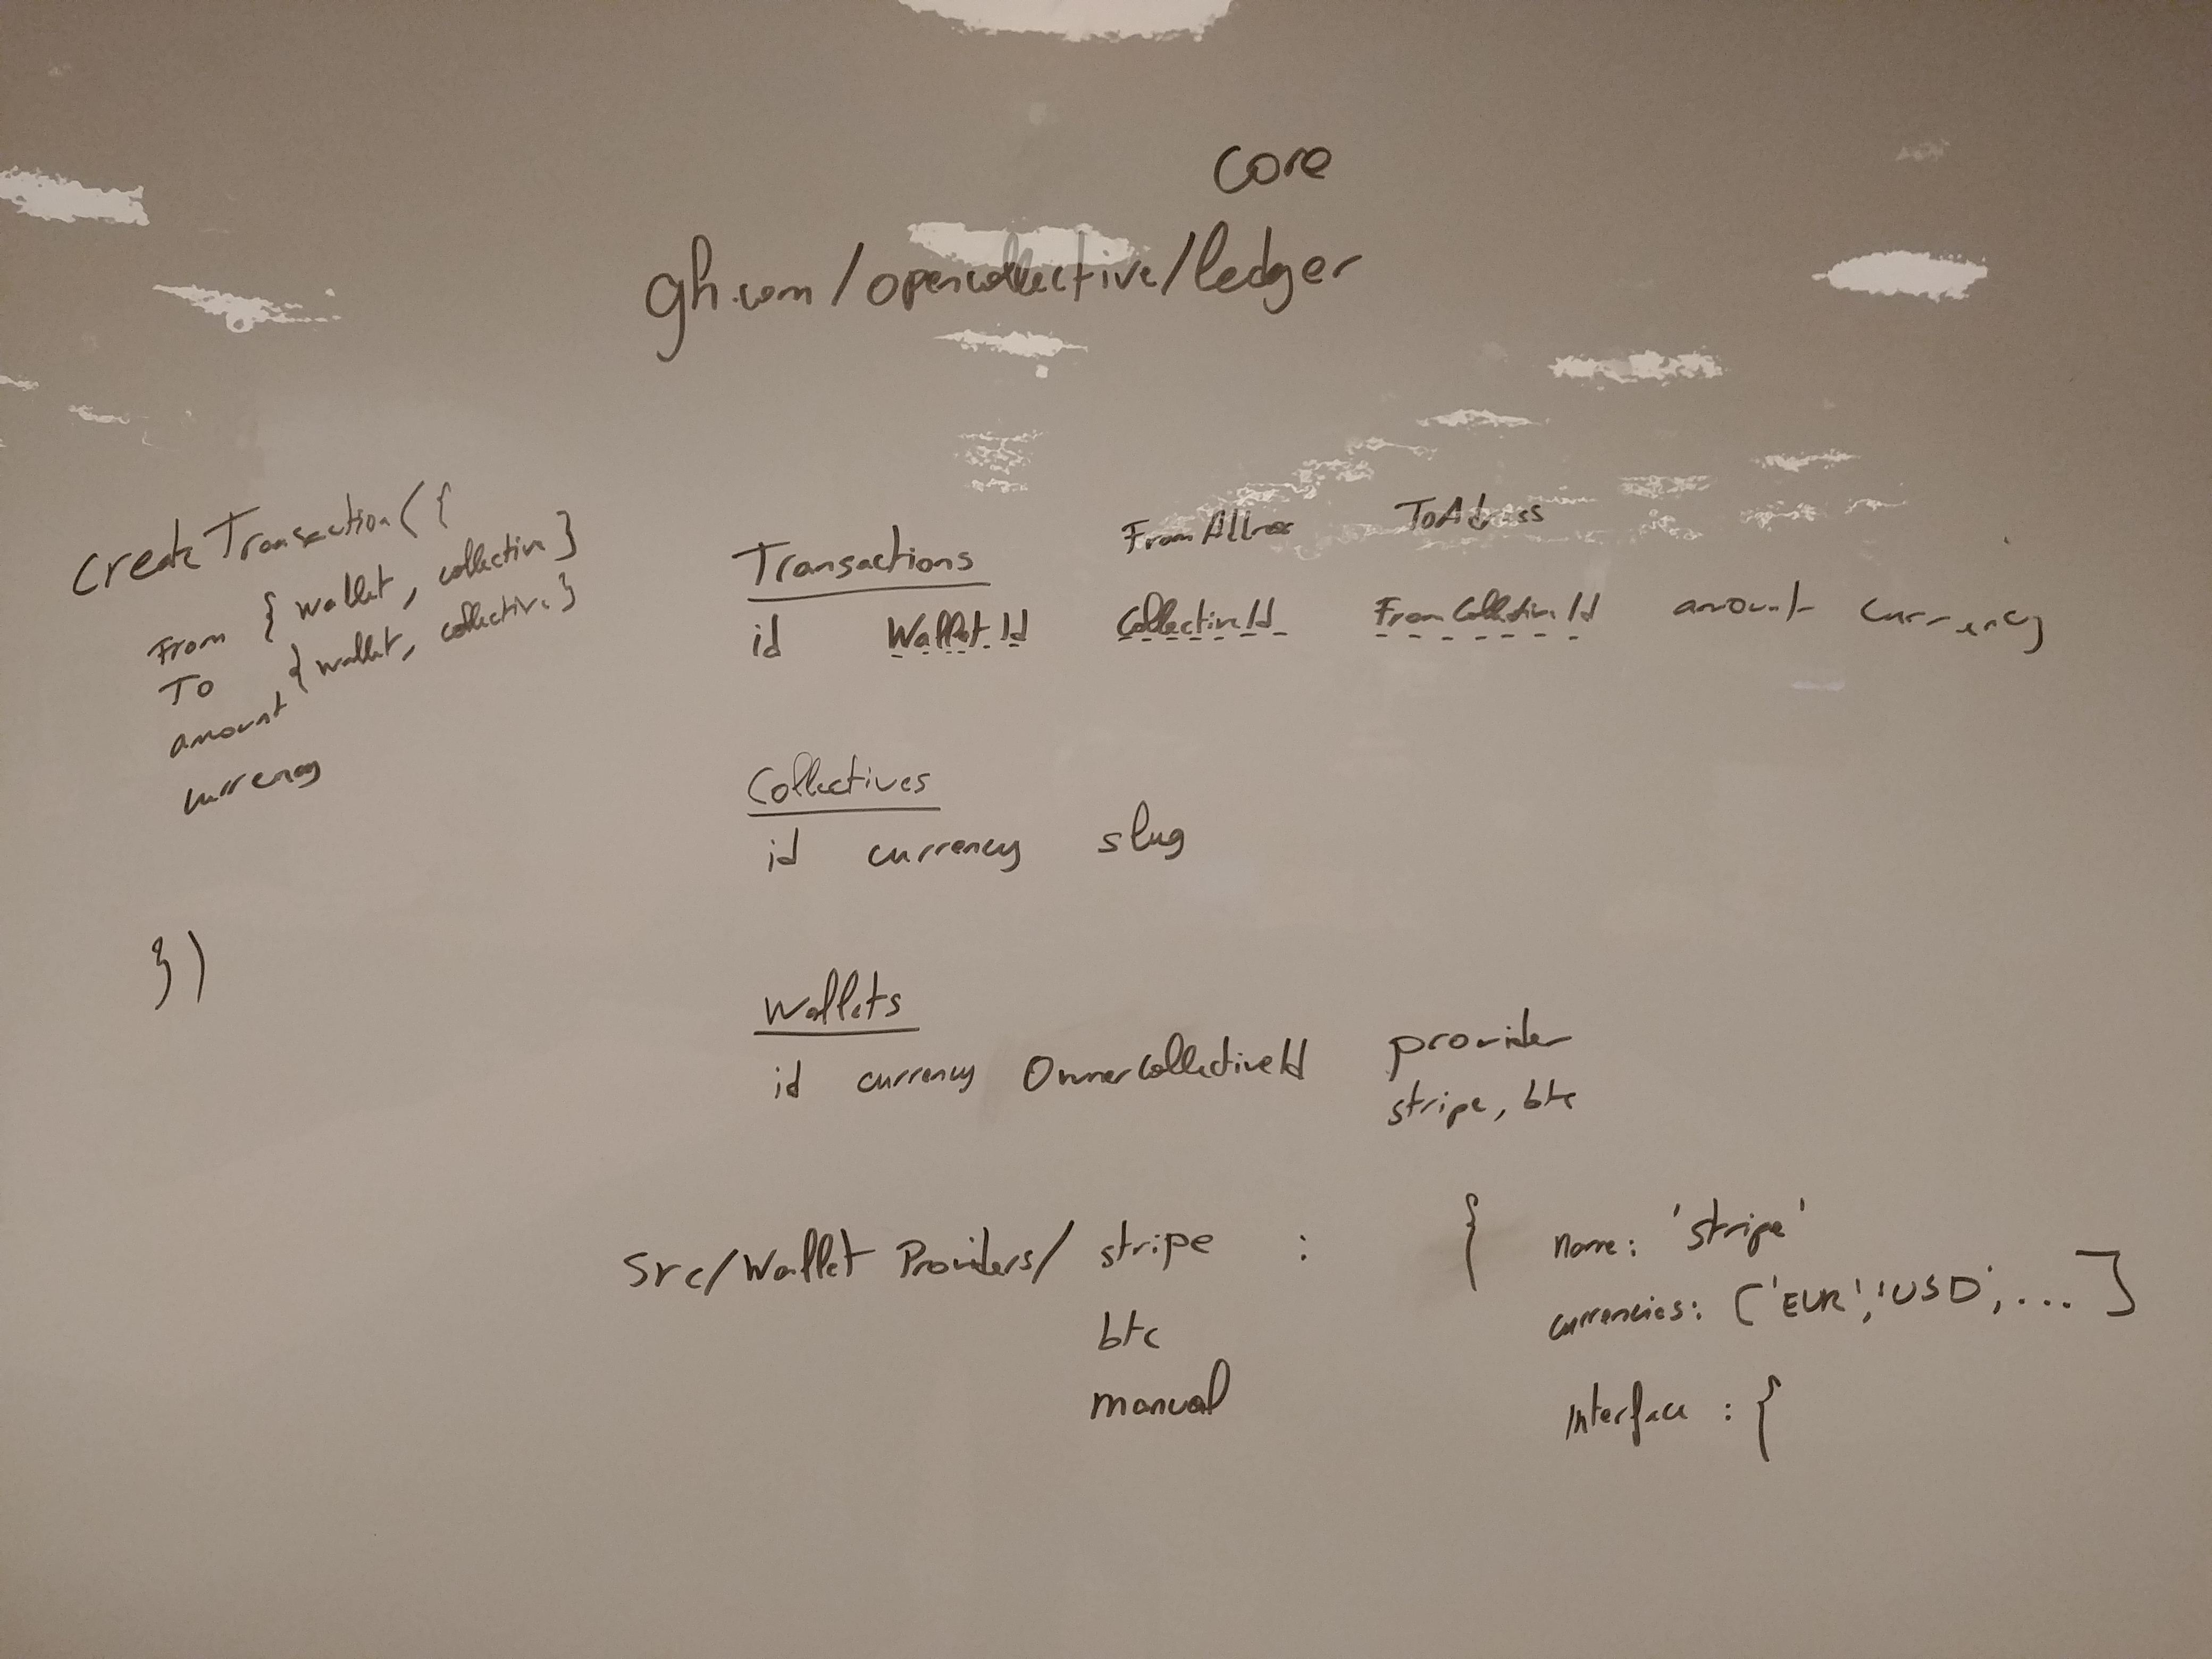 core
gh.com/opencollective/ledger
CreateTransaction({
From {wallet, collective}
To {wallet, collective}
amount,
currency
})
FromAddress ToAdress
Transactions
id WalletId CollectiveId FromCollectiveId amount currency
Collectives
id currency slug
Wallets
id currency OwnerCollectiveId provider
stripe, btc
Src/Wallet Providers/ stripe : { name: 'stripe'
currencies: ['EUR','USD', ... ]
btc
manual
Interface : {